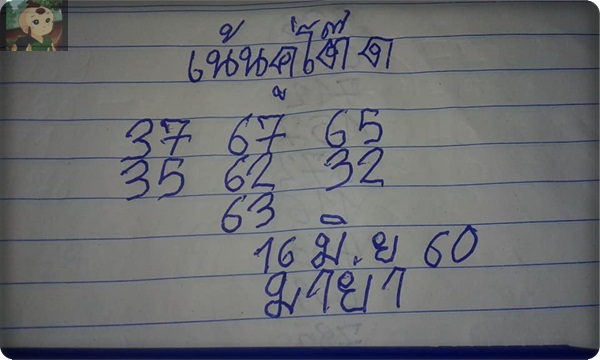 เน้นคู่โต๊ด
37 67 65
35 62 32
63
16 มิ.ย 60
มายา